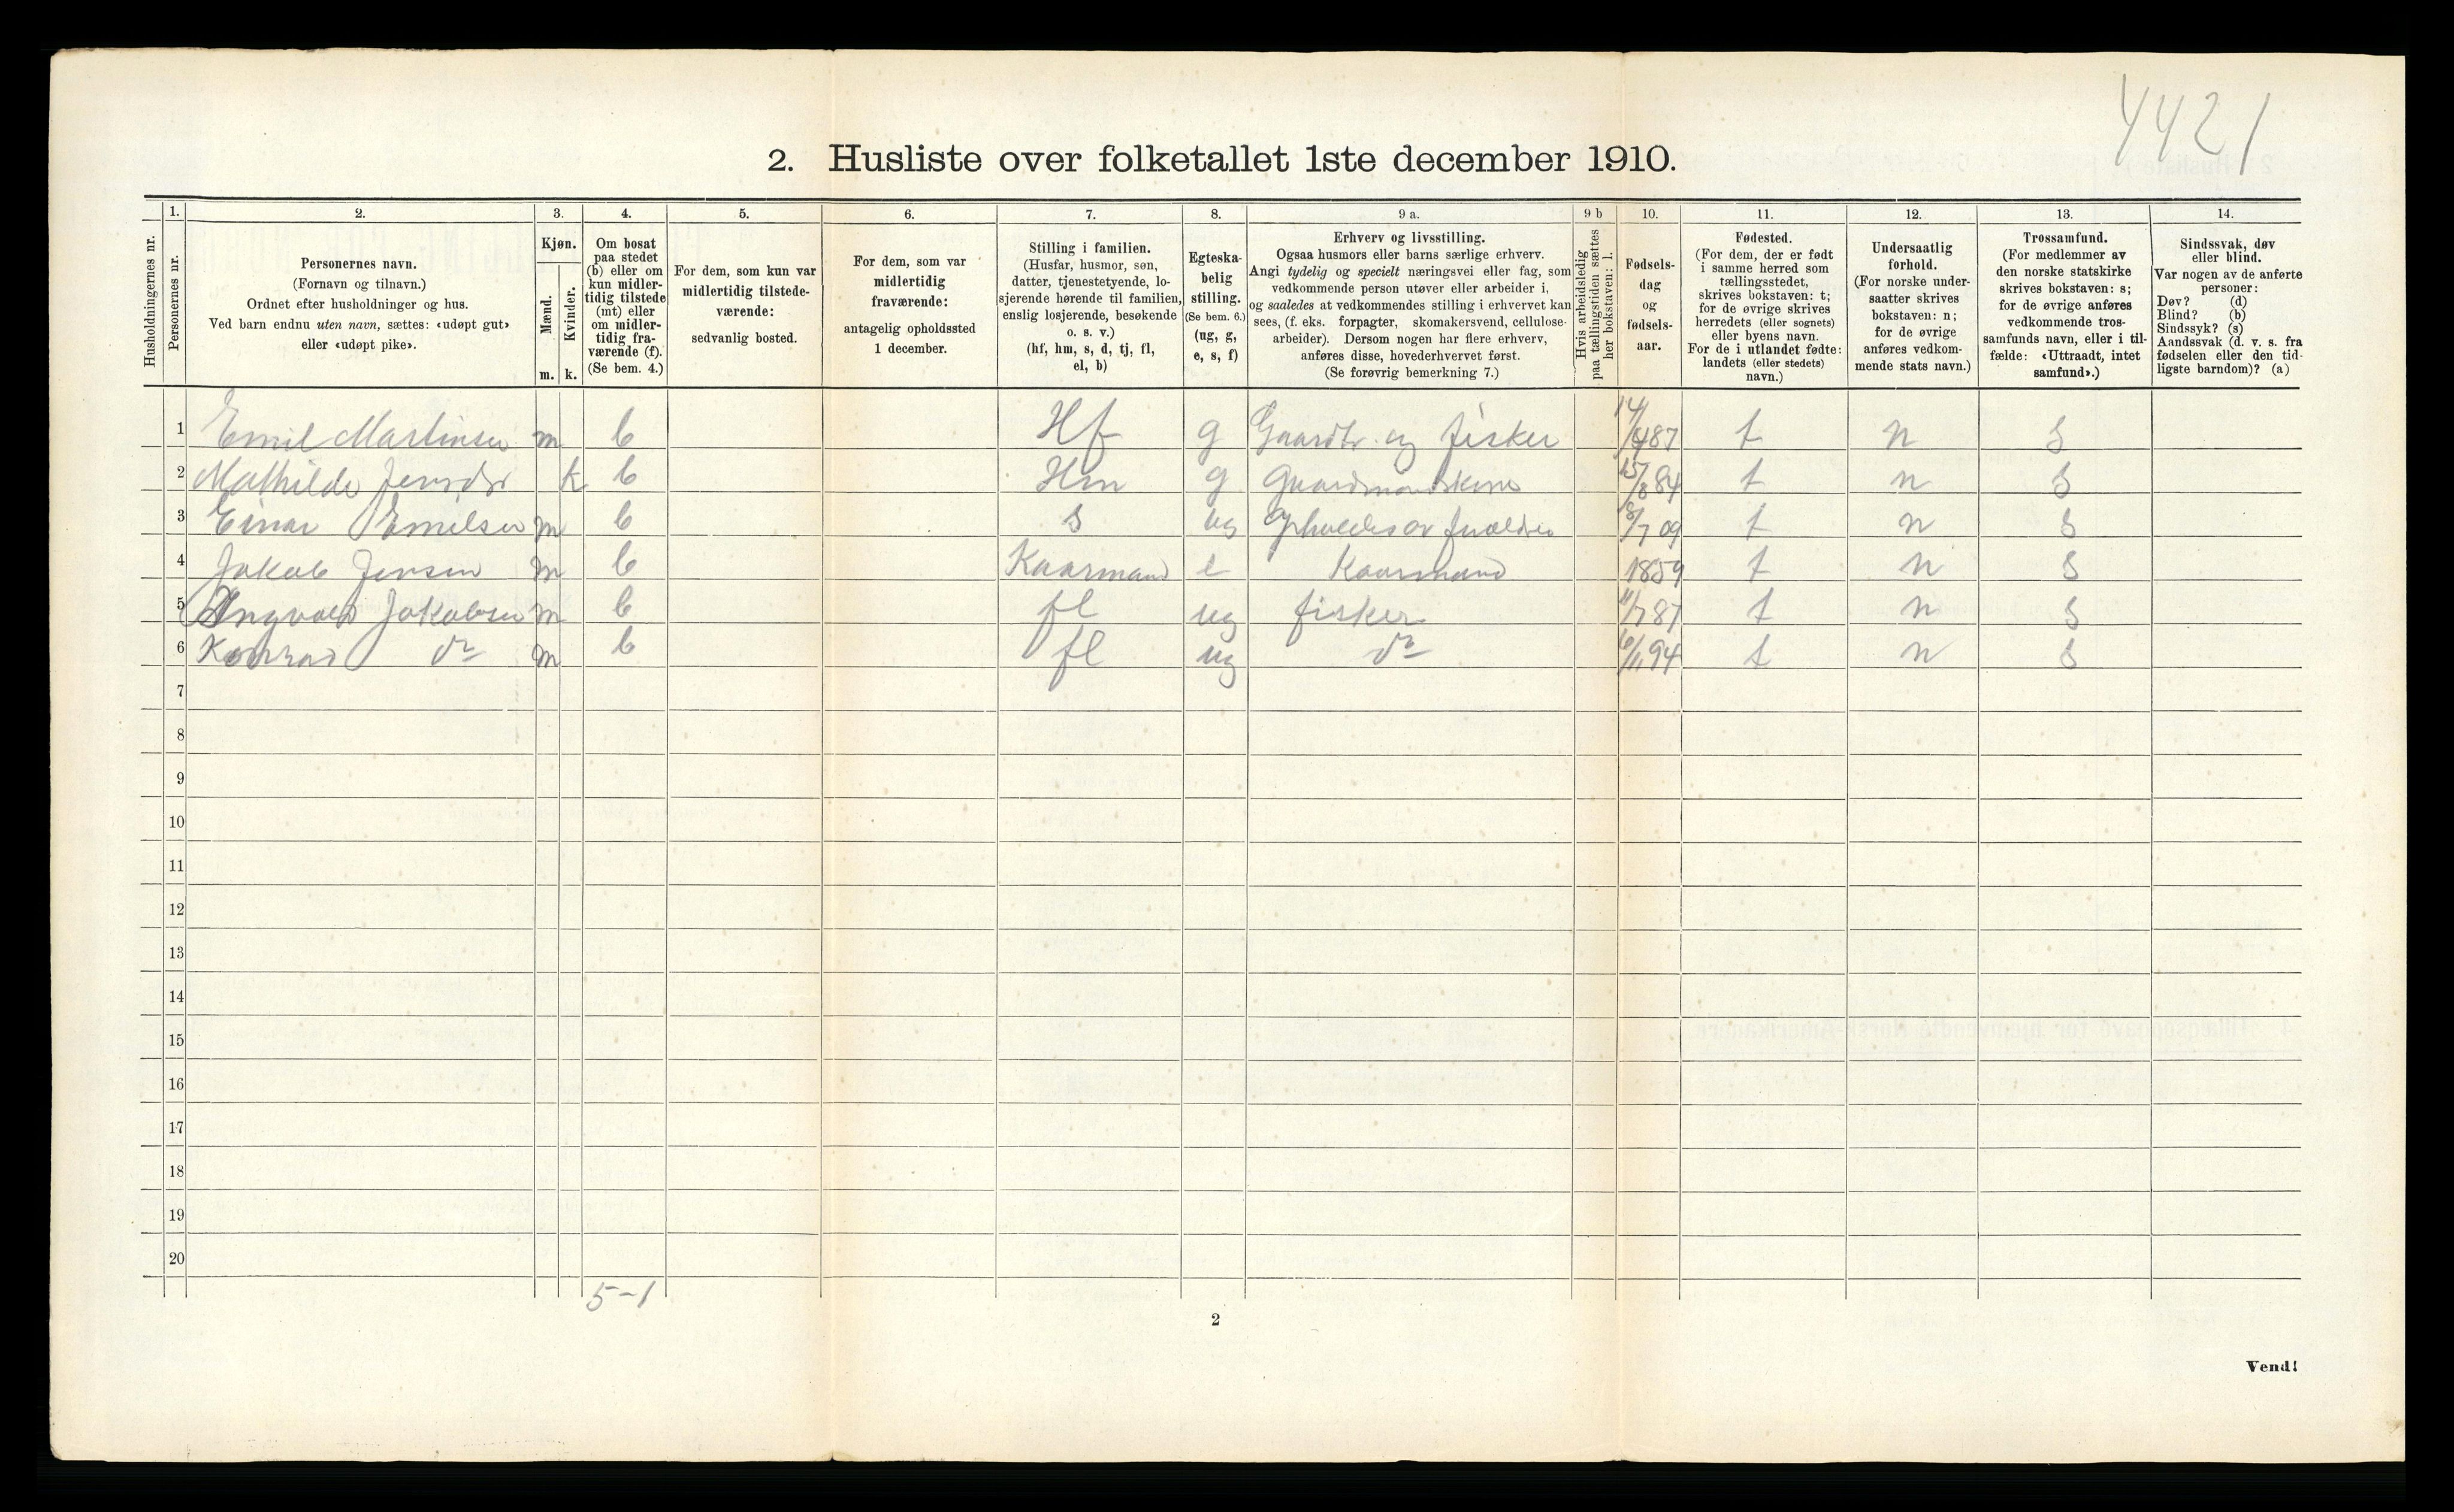 4421
2. Husliste over folketallet 1ste december 1910.
Husholdningernes nr.
1.
Personernes nr.
2.
Personernes navn.
(Fornavn og tilnavn.)
Ordnet efter husholdninger og hus.
Ved barn endnu uten navn, sættes: «udøpt gut»
eller «udøpt pike».
3.
Kjøn.
Mænd.
Kvinder.
m. k.
4.
Om bosat
paa stedet
(b) eller om
kun midler-
tidig tilstede
(mt) eller
om midler-
tidig fra-
værende (f).
(Se bem. 4.)
5.
For dem, som kun var
midlertidig tilstede-
værende:
sedvanlig bosted.
6.
For dem, som var
midlertidig
fraværende:
antagelig opholdssted
1 december.
7.
Stilling i familien.
(Husfar, husmor, søn,
datter, tjenestetyende, lo-
sjerende hørende til familien,
enslig losjerende, besøkende
o. s. v.)
(hf, hm, s, d, tj, fl,
el, b)
8.
Egteska-
belig
stilling.
(Se bem. 6.)
(ug, g,
e, s, f)
9 a.
Erhverv og livsstilling.
Ogsaa husmors eller barns særlige erhverv.
Angi tydelig og specielt næringsvei eller fag, som
vedkommende person utøver eller arbeider i,
og saaledes at vedkommendes stilling i erhvervet kan
sees, (f. eks. forpagter, skomakersvend, cellulose-
arbeider). Dersom nogen har flere erhverv,
anføres disse, hovederhvervet først.
(Se forøvrig bemerkning 7.)
9 b
Hvis arbeidsledig
paa tællingstiden sættes
her bokstaven: l.
10.
Fødsels-
dag
og
fødsels-
aar.
11.
Fødested.
(For dem, der er født
i samme herred som
tællingsstedet,
skrives bokstaven: t;
for de øvrige skrives
herredets (eller sognets)
eller byens navn.
For de i utlandet fødte:
landets (eller stedets)
navn.)
12.
Undersaatlig
forhold.
(For norske under-
saatter skrives
bokstaven: n;
for de øvrige
anføres vedkom-
mende stats navn.)
13.
Trossamfund.
(For medlemmer av
den norske statskirke
skrives bokstaven: s;
for de øvrige anføres
vedkommende tros-
samfunds navn, eller i til-
fælde: «Uttraadt, intet
samfund».)
14.
Sindssvak, døv
eller blind.
Var nogen av de anførte
personer:
Døv? (d)
Blind? (b)
Sindssyk? (s)
Aandssvak (d. v. s. fra
fødselen eller den tid-
ligste barndom)? (a)
1 Emil Martinsen m b Hf g Gaardbr. og fisker 14/ 87 t n s
2 Mathilde Jensdr k b Hm g Gaardmandskone 15/8 84 t n s
3 Einar Emilsen m b s ug 8/7 09 t n s
4 Jakob Jensen m b Kaarmand e Kaarmand 1859 t n s
5 Ingvald Jakobsen m b fl ug fisker 11/7 87 t n s
6 Konrad do m b fl ug do 6/11 94 t n s
7
8
9
10
11
12
13
14
15
16
17
18
19
20
5-1
2
Vend!